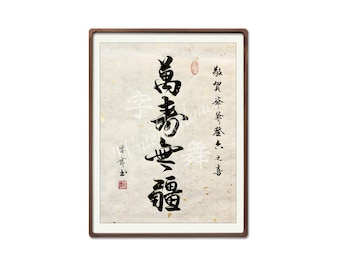 敬賀爺爺登六之喜
萬壽無疆
字舞